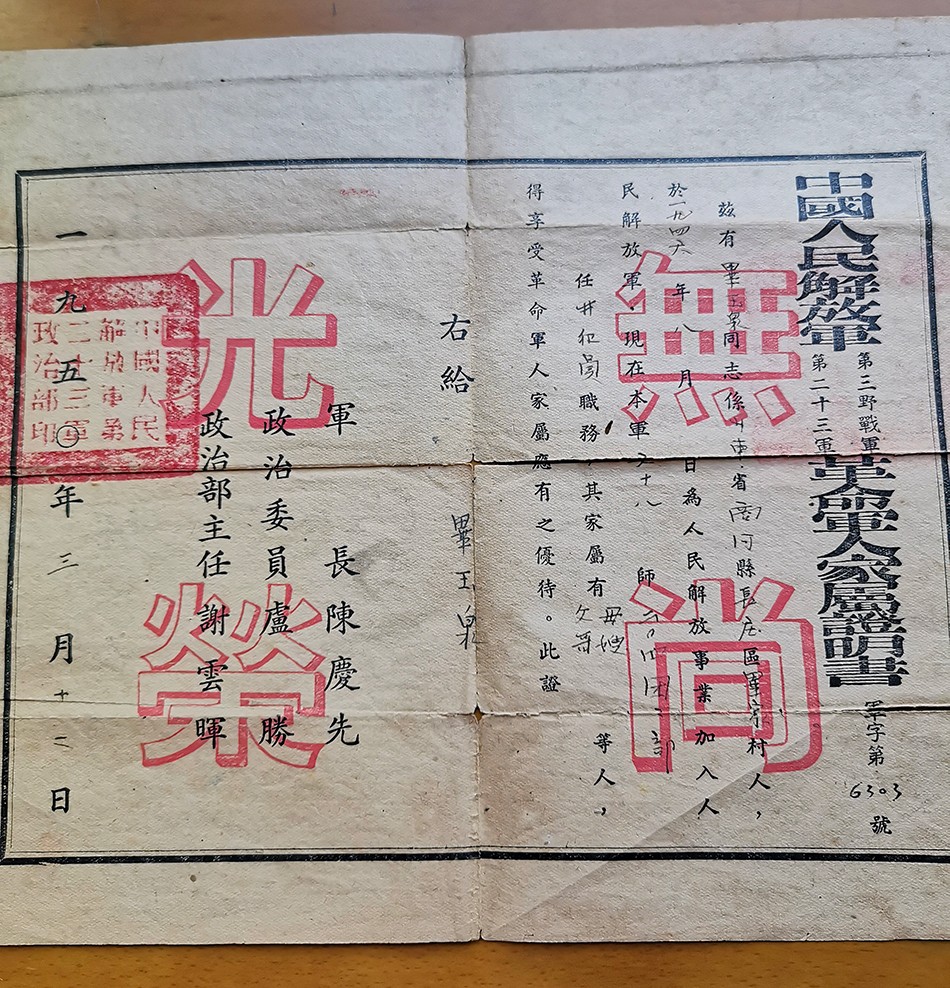 中國人民解放軍 第三野戰軍 第二十三軍 革命軍人家屬證明書 軍字第6303號
茲有畢玉泉同志係山東省商河縣長庄區畢家村人，
於一九四六年八月 日為人民解放事業加入人
民解放軍，現在本軍六十八師二〇四团 部
任 員職務，其家屬有 等人，
得享受革命軍人家屬應有之優待。此證
右給 畢玉泉
軍長陳慶先
政治委員盧勝
政治部主任謝雲暉
一九五〇年三月十二日
無尚光榮
中國人民
解放軍第
二十三軍
政治部印